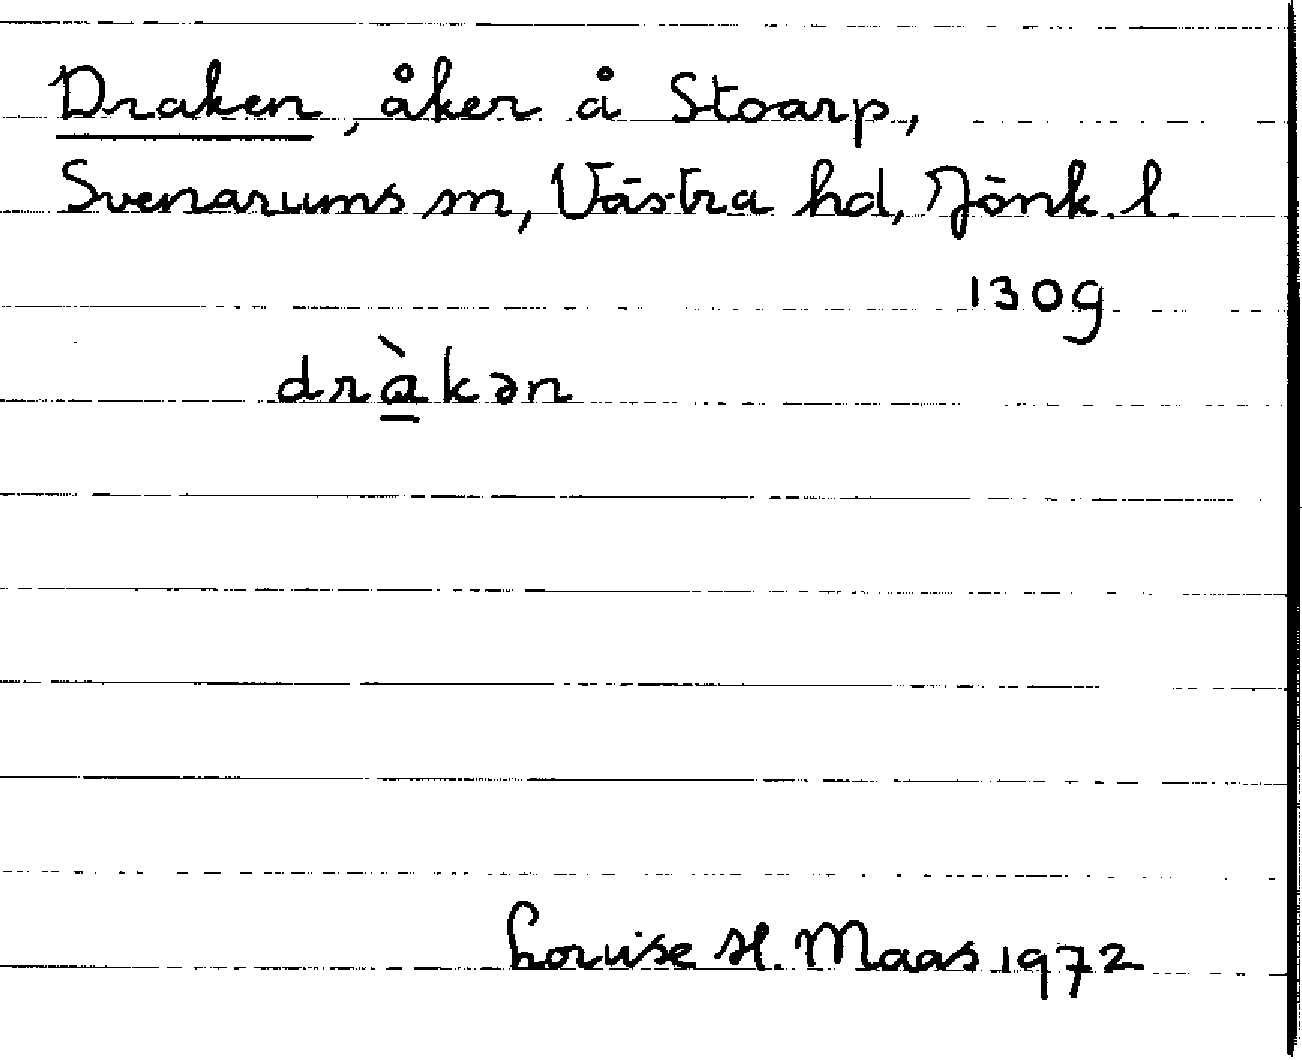 Draken, åker å Stoarp,
Svenarums sn, Västra hd, Jönk. l.
130g
dràkən
Louise H. Maas 1972